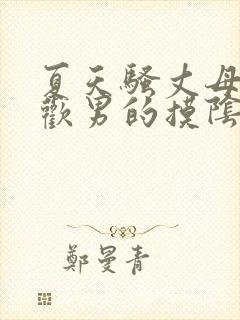 夏天騷丈母
歡男的摸陰
鄭曼青